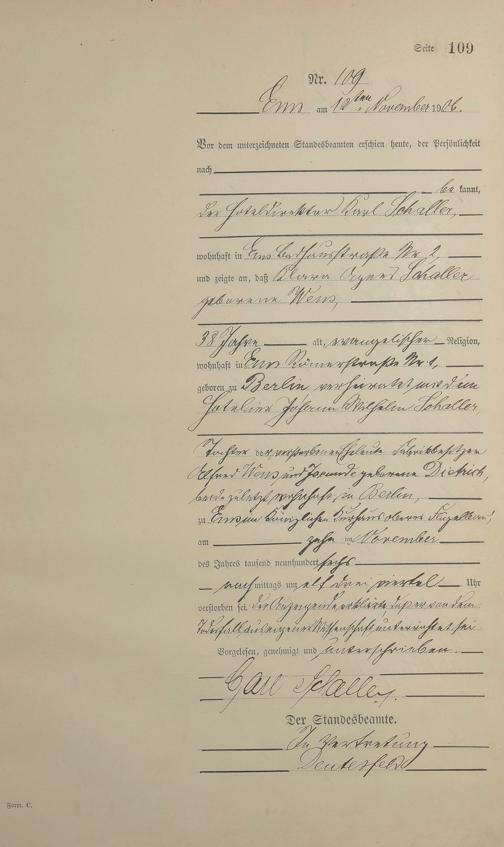 Seite 109
Nr. 109
Ems am 12ten November 1906.
Vor dem unterzeichneten Standesbeamten erschien heute, der Persönlichkeit
nach
be kannt,
der Hoteldirektor Karl Schaller,
wohnhaft in Ems Badhausstraße Nr. 2,
und zeigte an, daß Klara Agnes Schaller
geborene Wens,
38 Jahre alt, evangelischer Religion,
wohnhaft in Ems Römerstraße Nr. 1,
geboren zu Berlin verheiratet mit dem
Hotelier Johann Wilhelm Schaller,
Tochter der verstorbenen Eheleute Fabrikbesitzer
Alfred Wens und geborene Dietrich,
beide zuletzt wohnhaft in Berlin,
zu Ems im Königlichen Kurhaus oberes
am zehn ten November
des Jahres tausend neunhundert sechs
nach mittags um elf drei viertel Uhr
verstorben sei. Der Anzeigende erklärte, daß er von dem
Todesfall aus eigener Wissenschaft unterrichtet sei
Vorgelesen, genehmigt und unterschrieben.
Carl Schaller.
Der Standesbeamte.
In Vertretung
Form. C.